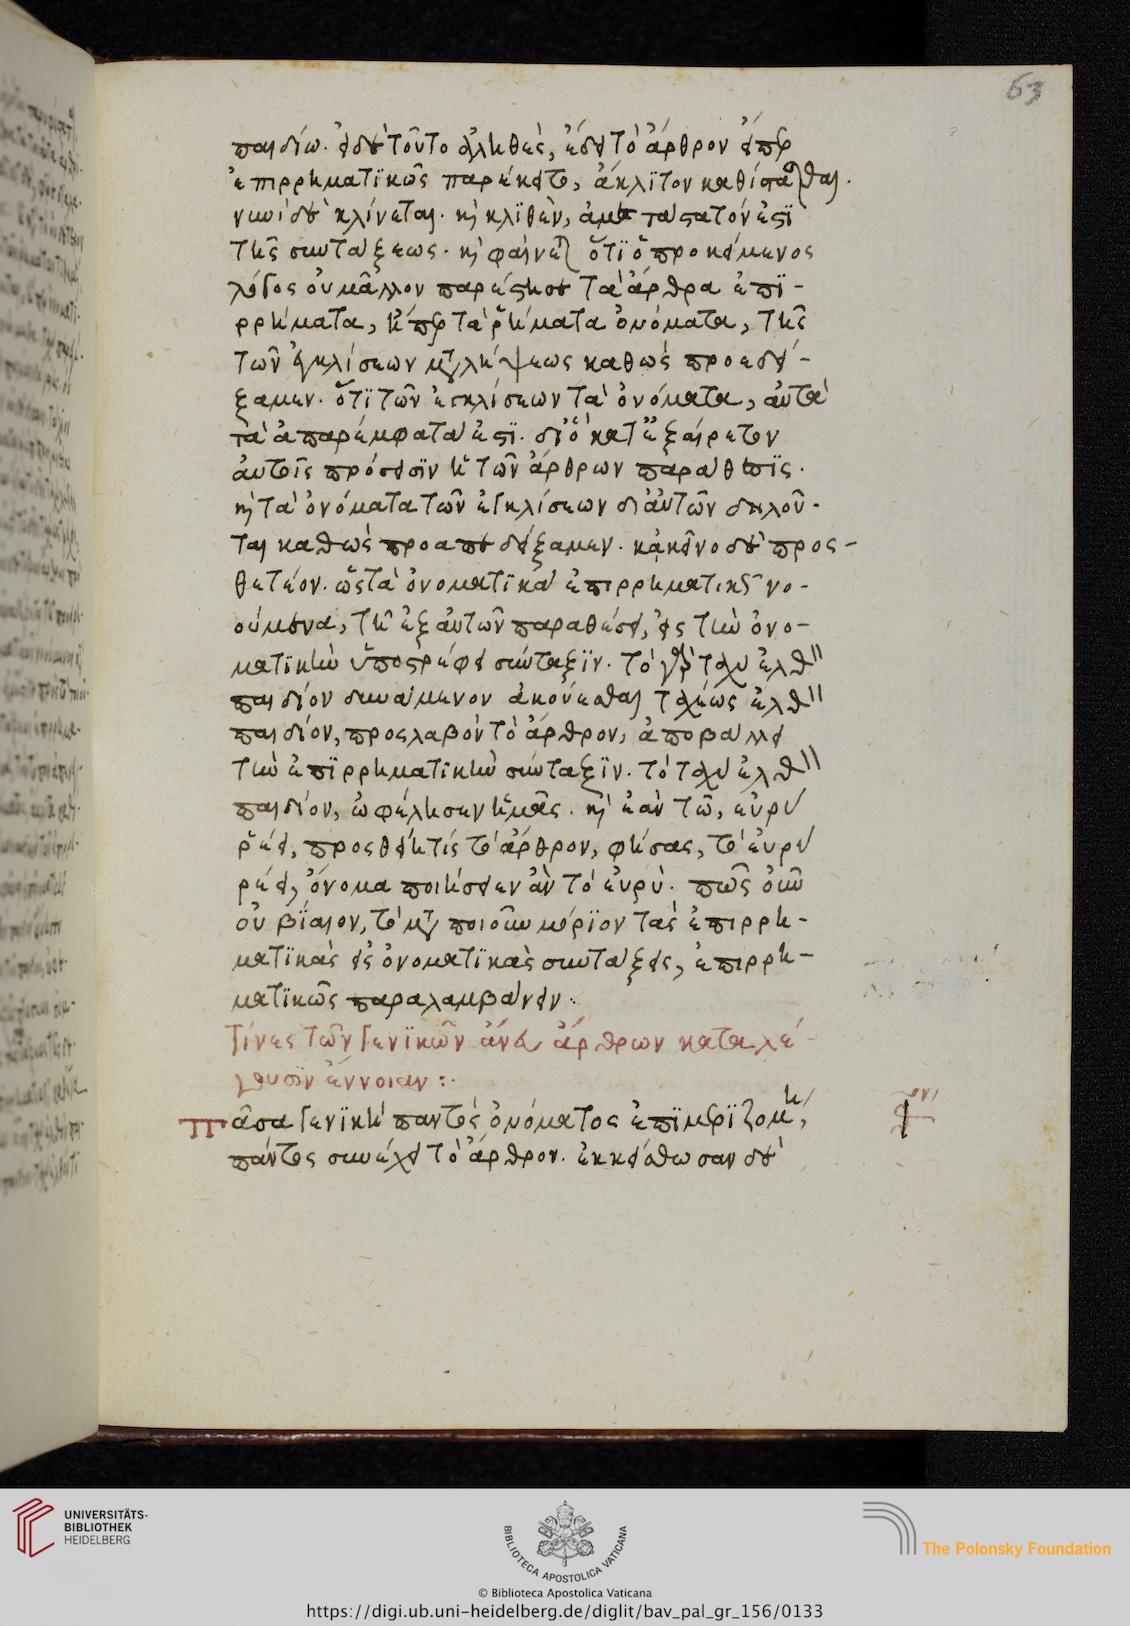 63
παιδίω. εἰ δὲ τοῦτο ἀληθὲς, ἔδει τὸ ἄρθρον εἴπερ
ἐπιρρηματϊκῶς παρέκειτο, ἄκλϊτον καθίστασθαι.
νυνὶ δὲ κλίνεται. κ κλϊθὲν, ἀμετάστατόν ἐστϊ
τῆς συντάξεως. κ φαίνεται ὅτϊ ὁ προκείμενος
λόγος οὐ μᾶλλον παρέστησε τὰ ἄρθρα ἐπϊ-
ρρήματα, ἤπερ τὰ ῥήματα ὀνόματα, τῆς
τῶν ἐγκλίσεων μεταλήψεως καθὼς προεδεί-
ξαμεν. ὅτϊ τῶν ἐγκλίσεων τὰ ὀνόματα, αὐτὰ
τὰ ἀπαρέμφατά ἐστϊ. διὸ κατ' ἐξαίρετον
αὐτοῖς πρόσεισϊν ἡ τῶν ἄρθρων παράθεσϊς.
κ τὰ ὀνόματα τῶν ἐγκλίσεων δι αὐτῶν δηλοῦ-
ται καθὼς προαπεδείξαμεν. κἀκεῖνο δὲ προς-
θετέον. ὡς τὰ ὀνοματϊκὰ ἐπιρρηματικῶς νο-
ούμενα, τῇ ἐξ αὐτῶν παραθέσει, εἰς τὴν ὀνο-
ματϊκὴν ὑποστρέφει σύνταξϊν. τὸ γὰρ ταχὺ ἐλθὸν
παιδίον δυνάμενον ἀκούεσθαι ταχέως ἐλθὸν
παιδίον, προςλαβὸν τὸ ἄρθρον, ἀποβάλλει
τὴν ἐπϊρρηματϊκὴν σύνταξϊν. τὸ ταχὺ ἐλθὸν
παιδίον, ὠφέλησεν ἡμᾶς. κ ἐὰν τῶ, εὐρὺ
ῥέει, προςθείη τίς τὸ ἄρθρον, φήσας, τὸ εὐρὺ
ρέει, ὄνομα ποιήσειεν ἂν τὸ εὐρὺ. πῶς οὖν
οὐ βϊαιον, τὸ μεταποιοῦν μόρϊον τὰς ἐπιρρη-
ματϊκὰς εἰς ὀνοματϊκὰς συντάξεις, ἐπιρρη-
ματϊκῶς παραλαμβάνειν.
Τίνες τῶν γενϊκῶν ἄνευ ἄρθρων καταλέ-
γουσϊν ἔννοιαν:.
Πᾶσα γενϊκὴ παντὸς ὀνόματος ἐπϊμερϊζομένη,
πάντως συνέχει τὸ ἄρθρον. ἐκκείσθωσαν δὲ
UNIVERSITÄTS-
BIBLIOTHEK
HEIDELBERG
BIBLIOTECA APOSTOLICA VATICANA
© Biblioteca Apostolica Vaticana
The Polonsky Foundation
https://digi.ub.uni-heidelberg.de/diglit/bav_pal_gr_156/0133